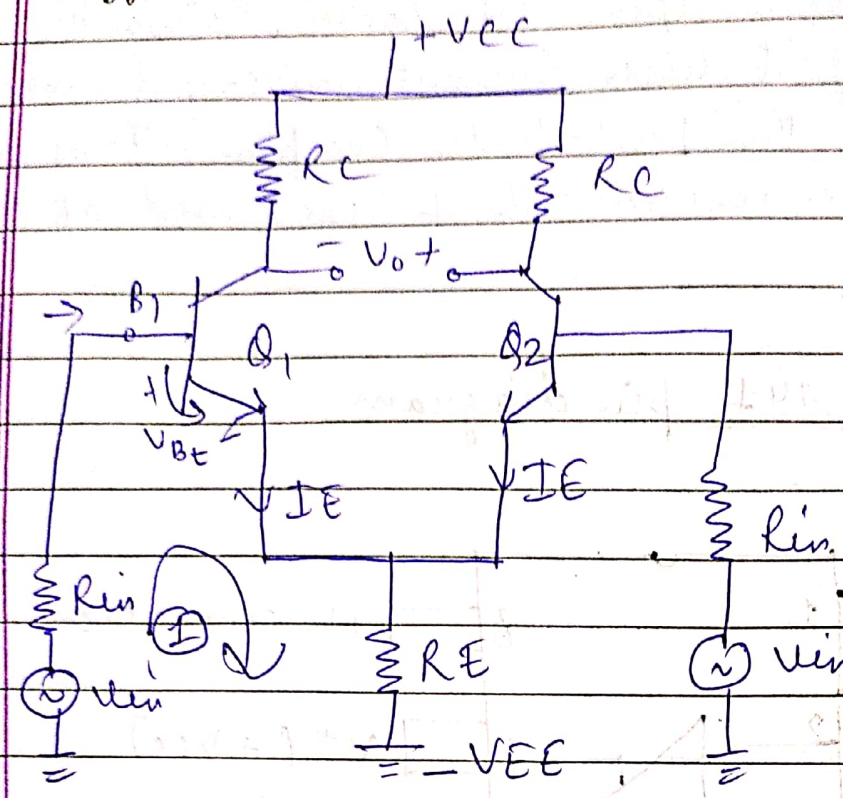 +VCC
RC
RC
- Vo +
B1
Q1
Q2
+
VBE
-
IE
IE
Rin
Rin.
I
RE
Vin
Vin
- VEE